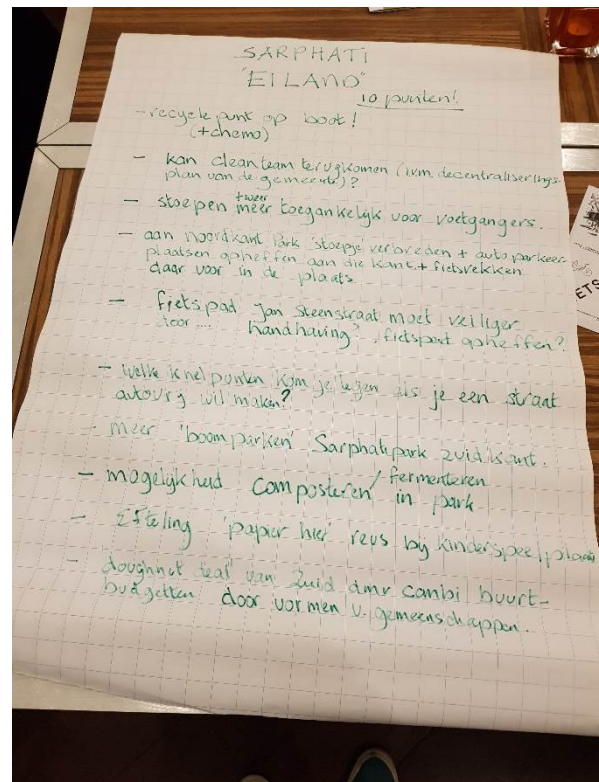 SARPHATI
"EILAND"
10 punten!
- recycle punt op boot!
(+chemo)
- kan cleanteam terugkomen (i.v.m. decentraliserings-
plan van de gemeente)?
- stoepen weer meer toegankelijk voor voetgangers.
- aan noordkant Park 'stoepje' verbreden + auto parkeer-
plaatsen opheffen aan die kant + fietsrekken
daar voor in de plaats
- fietspad Jan Steenstraat moet veiliger
door ... handhaving? fietspad opheffen?
- welke knelpunten kom je tegen als je een straat
autovrij wil maken?
- meer 'boomparken' Sarphatipark zuidkant.
- mogelijkheid composteren/fermenteren
in park
- Efteling 'papier hier' reus bij kinderspeelplaats
- doughnut deal van Zuid dmv combi buurt-
budgetten door vormen v. gemeenschappen.
ETS